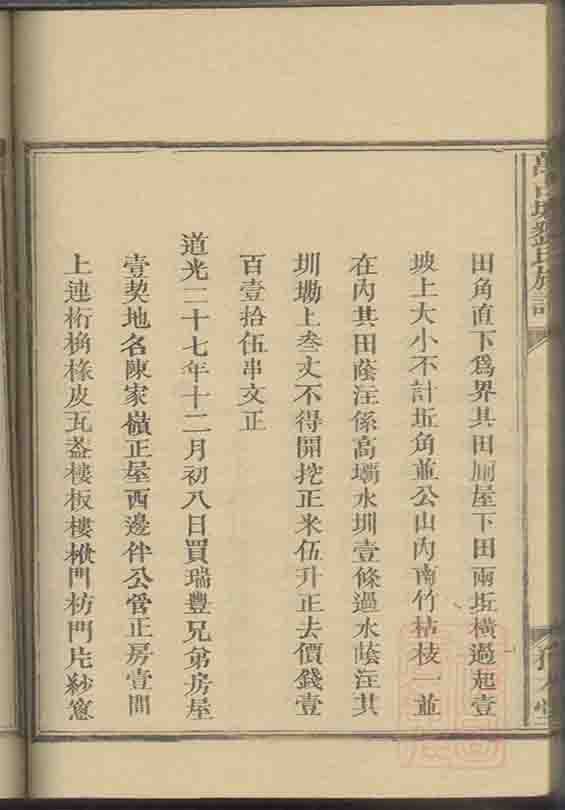 田角直下爲界其田厠屋下田兩坵橫過起壹
坡上大小不計坵角並公山內南竹枯枝一並
在內其田蔭注係高壩水圳壹條過水蔭注其
圳墈上叁丈不得開挖正米伍升正去價錢壹
百壹拾伍串文正
道光二十七年十二月初八日買瑞豐兄弟房屋
壹契地名陳家嶺正屋西邊伴公管正房壹間
上連桁桷椽皮瓦葢樓板樓楸門枋門片紗窓
劉氏族譜